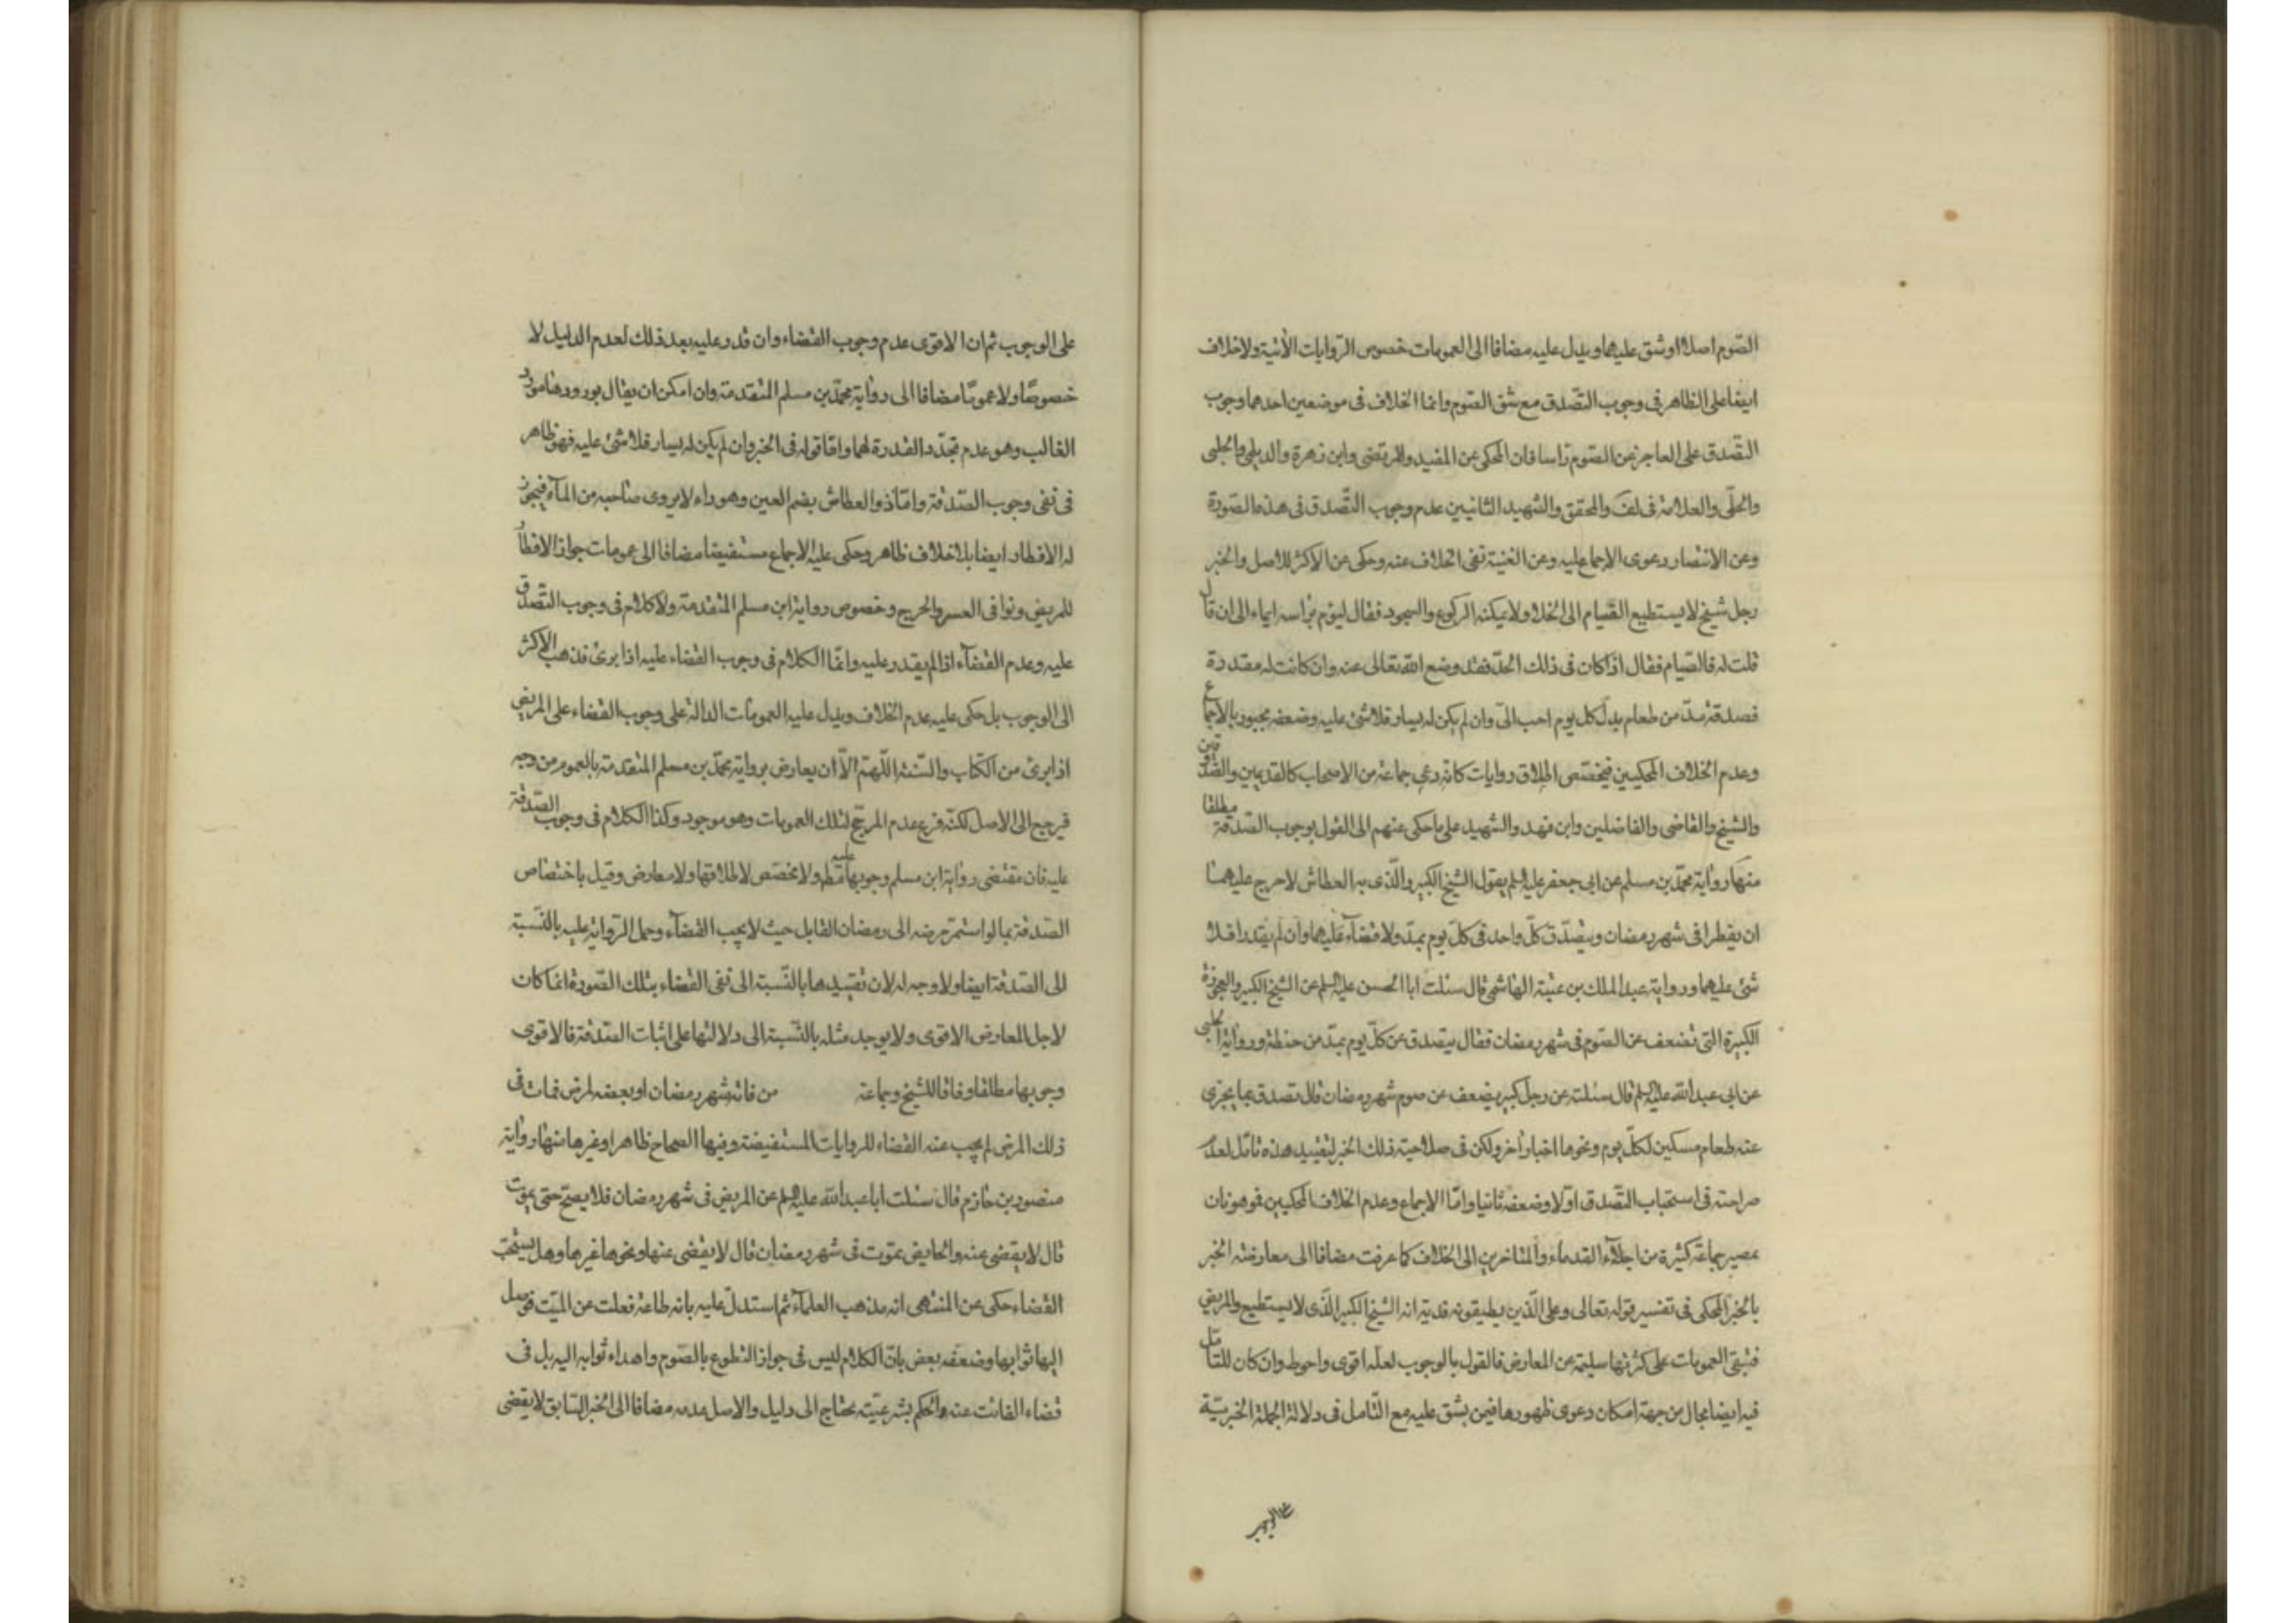 الصّوم اصلا او شق عليهما ويدل عليه مضافا الى العمومات خصوص الرّوايات الأتية ولا خلاف
ايضا على الظاهر فى وجوب التّصدق مع شق الصّوم وانما الخلاف فى موضعين احدهما وجوب
التّصدق على العاجز عن الصّوم راسا فان المحكى عن المفيد والمرتضى وابن زهرة والديلمى والحلبى
والحلّى والعلامة فى لف والمحقق والشهيد الثانيين عدم وجوب التّصدق فى هذه الصّورة
وعن الانتصار دعوى الاجماع عليه وعن الغنية نفى الخلاف عنه وحكى عن الاكثر للاصل والخبر
رجل شيخ لا يستطيع القيام الى الخلا ولا يمكنه الركوع والسجود فقال ليؤم براسه ايماء الى ان قال
قلت له فالصّيام فقال اذا كان فى ذلك الحدّ فقد وضع الله تعالى عنه وان كانت له مقدرة
فصدقة مدّ من طعام بدل كل يوم احب الىّ وان لم يكن له يسار فلا شئ عليه وضعفه مجبور بالاجماع
وعدم الخلاف المحكيين فيخصّص اطلاق روايات كانه دعى جماعة من الاصحاب كالقديمين والصّدوقين
والشيخ والقاضى والفاضلين وابن فهد والشهيد على ما حكى عنهم الى القول بوجوب الصّدقة مطلقا
منها رواية محمّد بن مسلم عن ابى جعفر عليه السلم يقول الشيخ الكبير والّذى به العطاش لا حرج عليهما
ان يفطرا فى شهر رمضان ويتصدّق كلّ واحد فى كلّ يوم بمدّ ولا قضاء عليهما وان لم يقدرا فلا
شئ عليهما ورواية عبد الملك بن عتبة الهاشمى قال سئلت ابا الحسن عليه السلم عن الشيخ الكبير والعجوزة
الكبيرة التى تضعف عن الصّوم فى شهر رمضان فقال يتصدق عن كلّ يوم بمدّ من حنطة ورواية الحلبى
عن ابى عبد الله عليه السلم قال سئلته عن رجل كبير يضعف عن صوم شهر رمضان قال تصدق بما يجزى
عنه طعام مسكين لكلّ يوم ونحوها اخبار أخر ولكن فى صلاحية ذلك الخبر لتقييد هذه تامّل لعدم
صراحته فى استحباب التّصدق اوّلا وضعفه ثانيا وامّا الاجماع وعدم الخلاف المحكيين فموهونان
بمصير جماعة كثيرة من اجلّاء القدماء والمتاخرين الى الخلاف كما عرفت مضافا الى معارضة الخبر
بالخبر المحكى فى تفسير قوله تعالى وعلى الّذين يطيقونه فدية انه الشيخ الكبير الّذى لا يستطيع والمريض
فتبقى العمومات على كثرتها سليمة عن المعارض فالقول بالوجوب لعلّه اقوى واحوط وان كان للتأمّل
فيه ايضا مجال من جهة امكان دعوى ظهورها فيمن يشق عليه مع التّامل فى دلالة الجملة الخبريّة
على الوجوب
على الوجوب ثم ان الاقوى عدم وجوب القضاء وان قدر عليه بعد ذلك لعدم الدليل لا
خصوصًا ولا عمومًا مضافا الى رواية محمّد بن مسلم المتقدمة وان امكن ان يقال بورودها مورد
الغالب وهو عدم تجدّد القدرة لهما وامّا قوله فى الخبر وان لم يكن له يسار فلا شئ عليه فهو ظاهر
فى نفى وجوب الصّدقة وامّا ذو العطاش بضم العين وهو داء لا يروى صاحبه من الماء فيجوز
له الافطار ايضا بلا خلاف ظاهر وحكى عليه الاجماع مستفيضا مضافا الى عمومات جواز الافطار
للمريض ونوافى العسر والحرج وخصوص رواية ابن مسلم المتقدمة ولا كلام فى وجوب التّصدق
عليه وعدم القضاء اذا لم يقدر عليه وانّما الكلام فى وجوب القضاء عليه اذا برئ فذهب الاكثر
الى الوجوب بل حكى عليه عدم الخلاف ويدل عليه العمومات الدالة على وجوب القضاء على المريض
اذا برئ من الكتاب والسّنة اللّهم الّا ان يعارض برواية محمّد بن مسلم المتقدمة بالعموم من وجه
فيرجع الى الاصل لكنّه فرع عدم المرجّح لتلك العمومات وهو موجود وكذا الكلام فى وجوب الصّدقة
عليه فان مقتضى رواية ابن مسلم وجوبها عليه مط ولا مخصّص لاطلاقها ولا معارض وقيل باختصاص
الصّدقة بما لو استمرّ مرضه الى رمضان القابل حيث لا يجب القضاء وحمل الرّواية عليه بالنّسبة
الى الصّدقة ايضا ولا وجه له لان تقييدها بالنّسبة الى نفى القضاء بتلك الصّورة انما كان
لاجل المعارض الاقوى ولا يوجد مثله بالنّسبة الى دلالتها على اثبات الصّدقة فالاقوى
وجوبها مطلقا وفاقا للشيخ وجماعة من فاته شهر رمضان او بعضه لمرض فمات فى
ذلك المرض لم يجب عنه القضاء للروايات المستفيضة وفيها الصحاح ظاهرا وغيرها منها رواية
منصور بن حازم قال سئلت ابا عبد الله عليه السلم عن المريض فى شهر رمضان فلا يصحّ حتى يموت
قال لا يقضى عنه والحايض يموت فى شهر رمضان قال لا يقضى عنها ونحوها غيرها وهل يستحبّ
القضاء حكى عن المنتهى انه مذهب العلماء ثم استدلّ عليه بانه طاعة فعلت عن الميّت فوصل
اليها ثوابها وضعّفه بعض بانّ الكلام ليس فى جواز التطوع بالصّوم واهداء ثوابه اليه بل فى
قضاء الفائت عنه والحكم بشرعيّته يحتاج الى دليل والاصل عدمه مضافا الى الخبر السّابق لا يقضى